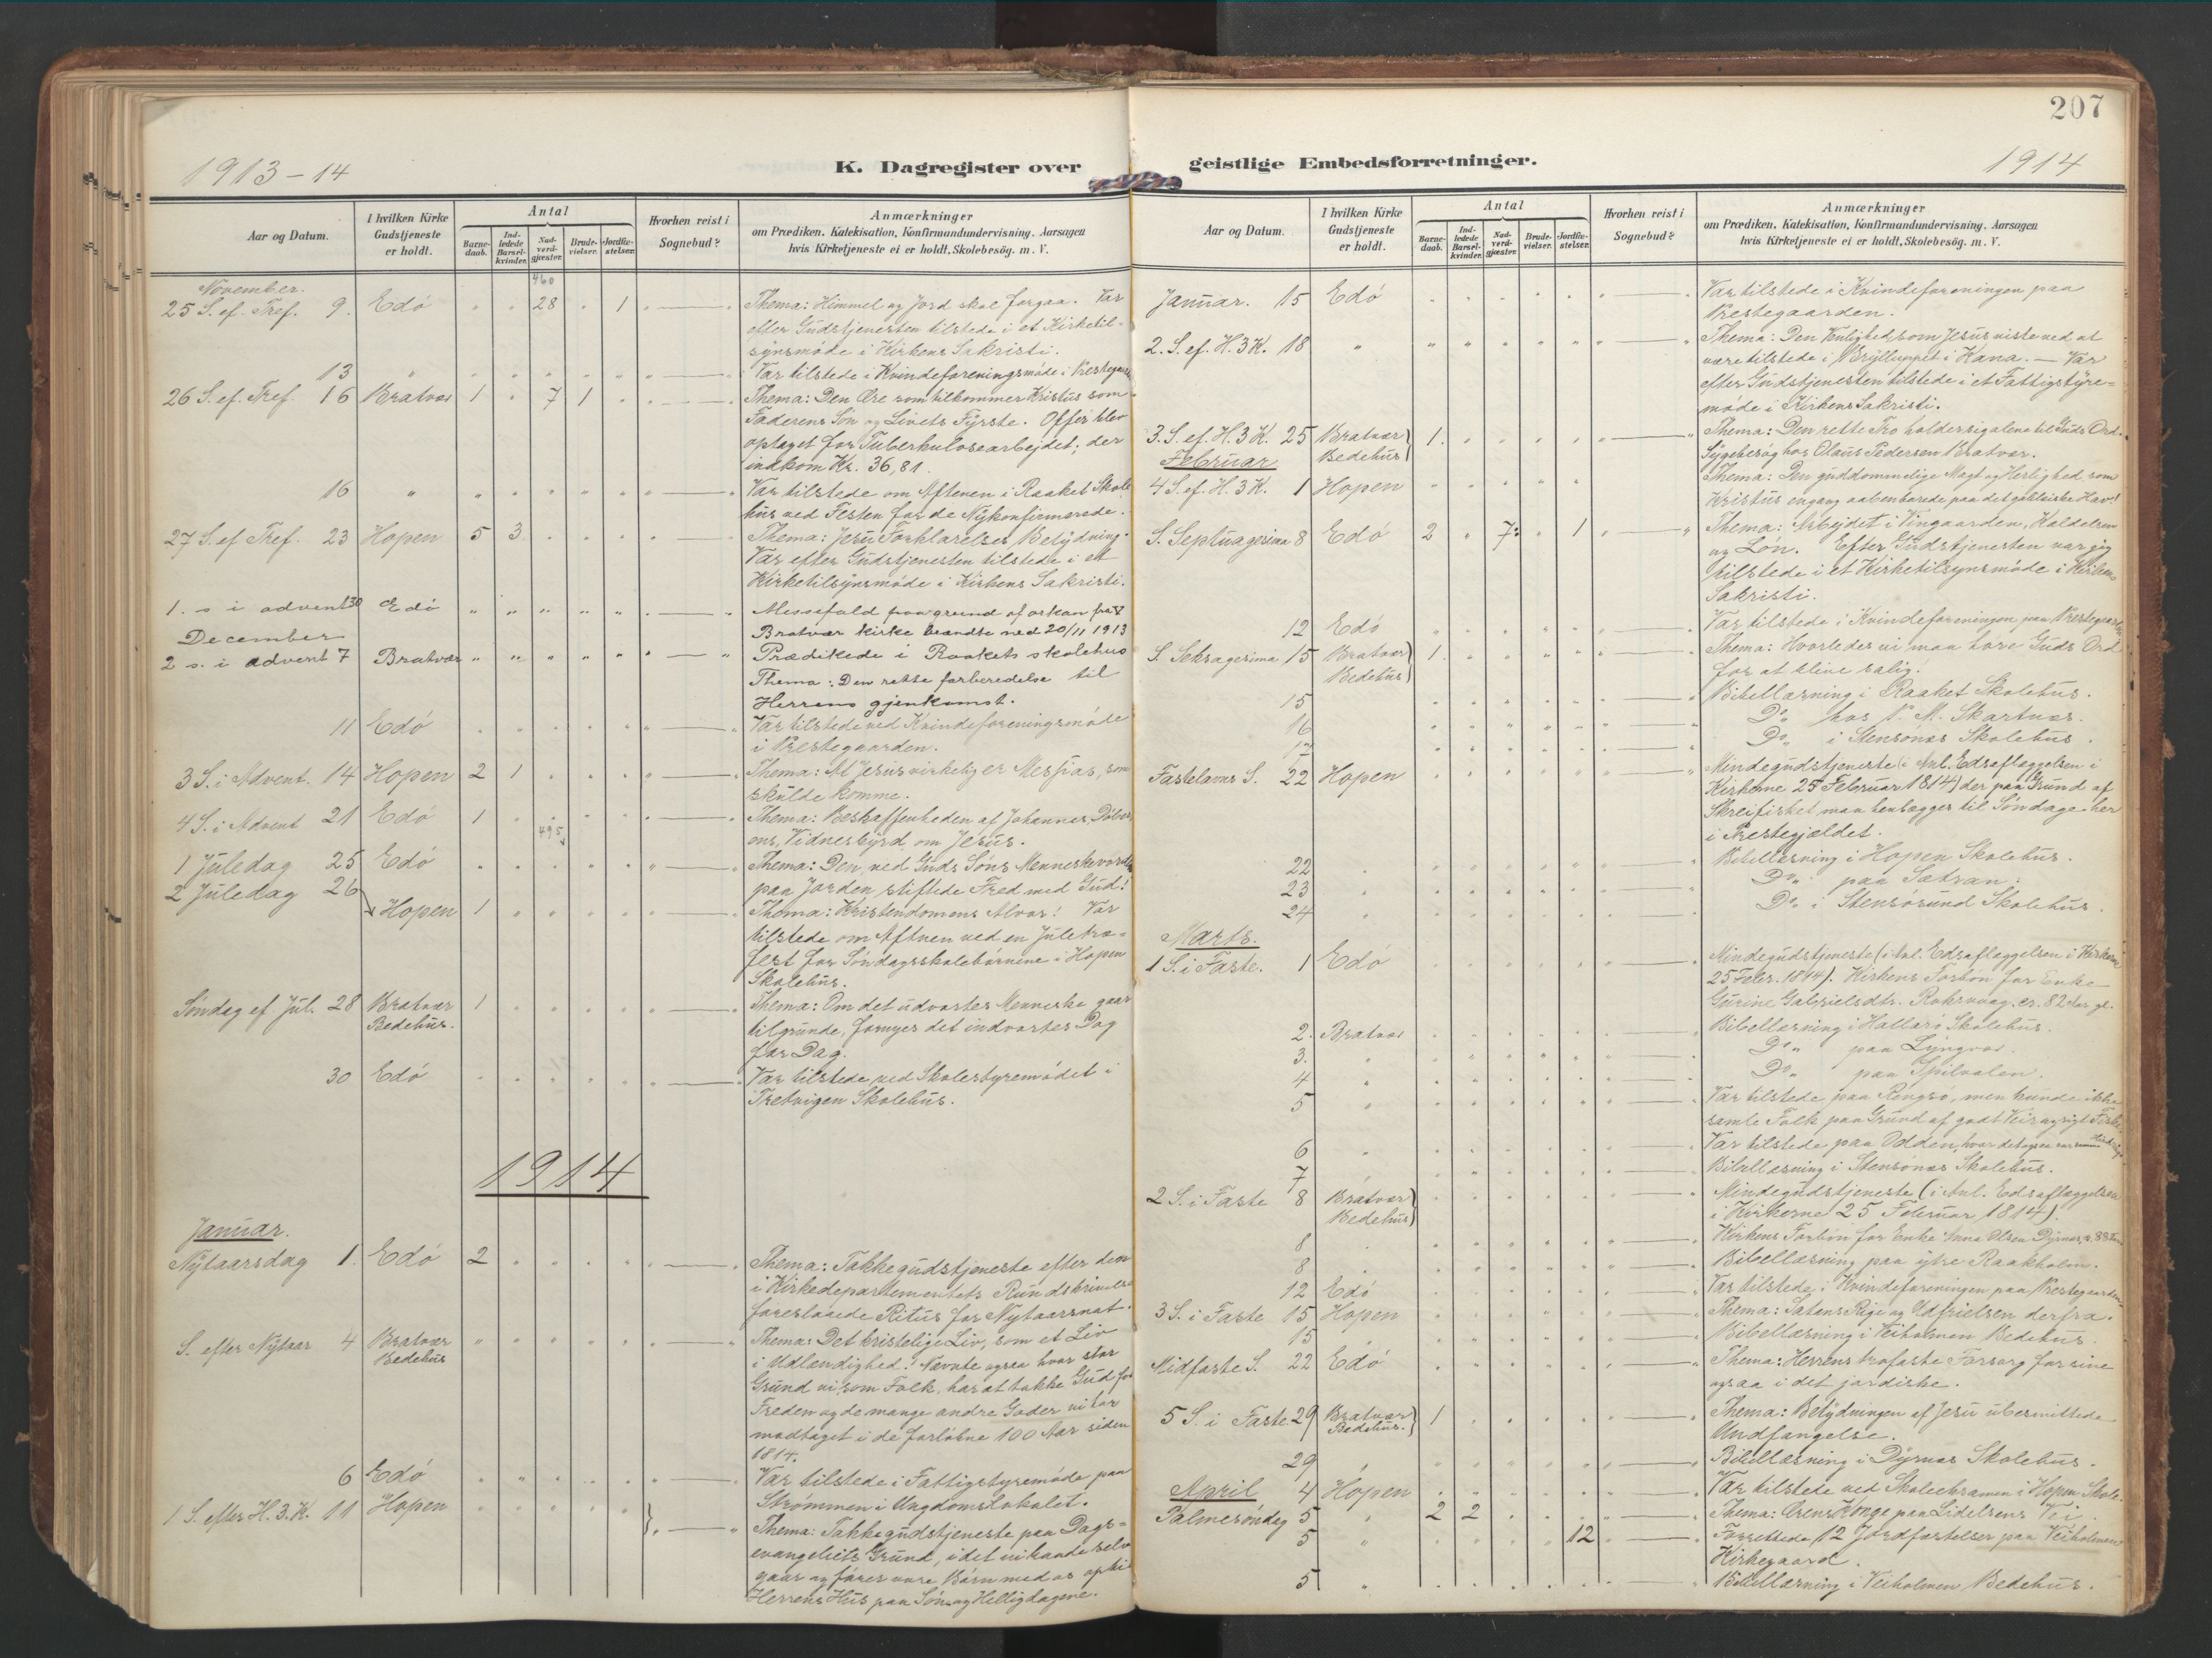 207
1913-14
K. Dagregister over
geistlige Embedsforretninger.
1914
Aar og Datum.
I hvilken Kirke Gudstjeneste er holdt.
Antal
Barnedaab.
Indledede Barselkvinder.
Nadverdgjæster.
Brudevielser.
Jordfæstelser.
Hvorhen reist i Sognebud?
Anmærkninger
om Prædiken, Katekisation, Konfirmandundervisning. Aarsagen
hvis Kirketjeneste ei er holdt, Skolebesög. m. V.
November.
460
25 S. ef. Tref. 9. Edö " " 28 " 1 " Thema: Himmel og Jord skal forgaa. Var
efter Gudstjenesten tilstede i et Kirketil-
synsmöde i Kirkens Sakristi.
13 " Var tilstede i Kvindeforeningsmöde i
26 S. ef. Tref. 16 Bratvær 1 " 7 1 " Thema: Den Ære som tilkommer Kristus som
Faderens Sön og Livets Fyrste. Offer blev
optaget for Tuberkulosearbejdet; der
indkom Kr. 36,81.
16 " Var tilstede om Aftenen i Raaket Skole
hus ved Festen for de Nykonfirmerede.
27 S. ef Tref. 23 Hopen 5 3 " Thema: Jesu Forklarelses Betydning.
Var efter Gudstjenesten tilstede i et
Kirketilsynsmöde i Kirkens Sakristi.
1. s i advent 30 Edö " Messefald paa grund af orkan
Bratvær kirke brændte ned 20/11 1913
December
2 s. i advent 7 Bratvær " Prædikede i Raakets skolehus
Thema: Den rette forberedelse til
Herrens gjenkomst.
11 Edö " Var tilstede ved Kvindeforeningsmöde
i Prestegaarden.
3 S. i Advent. 14 Hopen 2 1 " Thema: At Jesus virkelig er Messias, som
skulde komme.
4 S. i Advent 21 Edö 1 " Thema: Beskaffenheden af Johannes, Döber
ens, Vidnesbyrd om Jesus.
495
1 Juledag 25 Edö " Thema: Den, ved Guds Söns
paa Jorden stiftede Fred med Gud!
2 Juledag 26 Hopen 1 " Thema: Kristendomens Alvor! Var
tilstede om Aftnen ved en Juletræ-
fest for Söndagsskolebörnene i Hopen
Skolehus.
Söndag ef Jul. 28 Bratvær Bedehus. 1 " Thema: Om det udvortes Menneske gaar
tilgrunde, fornyes det indvortes Dag
for Dag.
30 Edö " Var tilstede ved Skolestyremödet i
Tretvigen Skolehus.
1914
Januar.
Nytaarsdag 1. Edö 2 " Thema: Takkegudstjeneste efter den
i Kirkedepartementets Rundskrivelse
foreslaaede Ritus for Nytaarsnat.
S. efter Nytaar 4 Bratvær Bedehus " Thema: Det kristelige Liv, som et Liv
i Udlændighed! Nævnte ogsaa hvor stor
Grund vi, som Folk, har at takke Gud for
Freden og de mange andre Goder vi har
modtaget i de forlöbne 100 Aar siden
1814.
6 Edö " Var tilstede i Fattigstyremöde paa
Strömmen i Ungdomslokalet.
1 S. efter H. 3. K. 11 Hopen " Thema: Takkegudstjeneste paa Dags-
evangeliets Grund, idet vi baade selv
gaar og förer vore Börn med os op
Herrens Hus paa Sön og Helligdagene.
Aar og Datum.
I hvilken Kirke Gudstjeneste er holdt.
Antal
Barnedaab.
Indledede Barselkvinder.
Nadverdgjæster.
Brudevielser.
Jordfæstelser.
Hvorhen reist i Sognebud?
Anmærkninger
om Prædiken, Katekisation, Konfirmandundervisning. Aarsagen
hvis Kirketjeneste ei er holdt, Skolebesög. m. V.
Januar. 15 Edö " Var tilstede i Kvindeforeningen paa
Prestegaarden.
2. S. ef. H. 3 K. 18 " Thema: Den Venlighed, som Jesus viste ved at
være tilstede i Brylluppet i Kana. — Var
efter Gudstjenesten tilstede i et Fattigstyre-
möde i Kirkens Sakristi.
3. S. ef. H. 3 K. 25 Bratvær Bedehus 1. " Thema: Den rette Tro holder sig alene til Guds Ord.
Sygebesög hos Olaus Pedersen Bratvær.
Februar
4 S. ef. H. 3 K. 1 Hopen " Thema: Den guddommelige Magt og Herlighed som
Kristus engang aabenbarede paa det galilæiske Hav!
S. Septuagesima 8 Edö 2 " 7 " 1 " Thema: Arbejdet i Vingaarden, Kaldelsen
og Lön. Efter Gudstjenesten var jeg
tilstede i et Kirketilsynsmöde i Kirkens
Sakristi.
12 Edö " Var tilstede i Kvindeforeningen paa Prestegaarden
S. Seksagesima 15 Bratvær Bedehus 1. " Thema: Hvorledes vi maa höre Guds Ord
for at blive salig!
15 " Bibellæsning i Raaket Skolehus.
16 " Do " hos P. M. Skartnæs.
17 " Do " i Stensönæs Skolehus.
Fastelavns S. 22 Hopen " Mindegudstjeneste (i Anl. Edsaflæggelsen i
Kirkerne 25 Februar 1814) der paa Grund af
Skreifisket maa henlægges til Söndage her
i Prestegjældet.
22 " Bibellæsning i Hopen Skolehus.
23 " Do " paa Sætran.
24 " Do " i Stensösund Skolehus.
Marts.
1 S. i Faste. 1 Edö " Mindegudstjeneste (i Anl. Edsaflæggelsen i Kirkerne
25 Febr. 1814). Kirkens Forbön for Enke
Gurine Gabrielsdtr. Rokvaag, ca. 82 Aar gl.
2. Bratvær " Bibellæsning i Hallarö Skolehus
3. " Do " paa Lyngvær.
4 " Do " paa Spilvalen.
5 " Var tilstede paa Ringsö, men kunde ikke
samle Folk paa Grund af godt Veir og rigt Fiske
6 " Var tilstede paa Odden, hvor det ogsaa var samme
7 " Bibellæsning i Stensönæs Skolehus.
2 S. i Faste 8 Bratvær Bedehus " Mindegudstjeneste (i Anl. Edsaflæggelsen
i Kirkerne 25 Februar 1814).
8 " Kirkens Forbön for Enke Anna Olsen Dyrnæs, 88
8 " Bibellæsning paa ytre Raakholm.
12 Edö " Var tilstede i Kvindeforeningen paa Prestegaarden
3 S. i Faste 15 Hopen " Thema: Satans Rige og Udfrielsen derfra.
15 " Bibellæsning i Veiholmen Bedehus.
Midfaste S. 22 Edö " Thema: Herrens trofaste Forsorg for sine
ogsaa i det jordiske.
5 S. i Faste 29 Bratvær Bedehus. 1 " Thema: Betydningen af Jesu ubesmittede
Undfangelse.
29 " Bibellæsning i Dyrnæs Skolehus.
April 4 Hopen " Var tilstede ved Skoleeksamen i Hopen Skole.
Palmesöndag 5 " 2 2 " Thema: Ærens Konge paa Lidelsens Vei.
5 " 12 " Forrettede 12 Jordfæstelser paa Veiholmen
Kirkegaard.
5 " Bibellæsning i Veiholmen Bedehus.